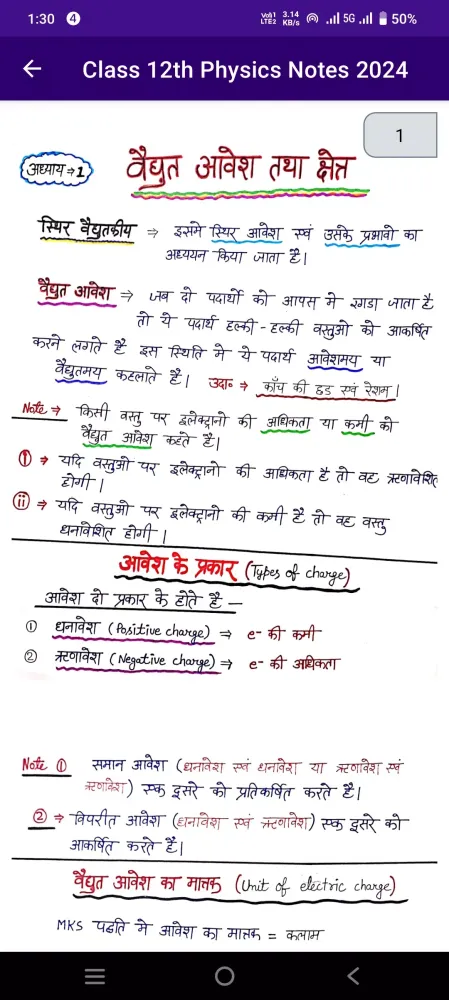 1:30 4 Vo)) 1 LTE2 3.14 KB/s 5G 50%
Class 12th Physics Notes 2024
1
अध्याय → 1
वैद्युत आवेश तथा क्षेत्र
स्थिर वैद्युतकीय → इसमे स्थिर आवेश एवं उसके प्रभावो का
अध्ययन किया जाता है।
वैद्युत आवेश → जब दो पदार्थो को आपस मे रगडा जाता है
तो ये पदार्थ हल्की-हल्की वस्तुओ को आकर्षित
करने लगते है इस स्थिति मे ये पदार्थ आवेशमय या
वैद्युतमय कहलाते है। उदा० → काँच की छड एवं रेशम।
Note → किसी वस्तु पर इलेक्ट्रानो की अधिकता या कमी को
वैद्युत आवेश कहते है।
(i) → यदि वस्तुओ पर इलेक्ट्रानो की अधिकता है तो वह ऋणावेशित
होगी।
(ii) → यदि वस्तुओ पर इलेक्ट्रानो की कमी है तो वह वस्तु
धनावेशित होगी।
आवेश के प्रकार (Types of charge)
आवेश दो प्रकार के होते है —
① धनावेश (Positive charge) → e- की कमी
② ऋणावेश (Negative charge) → e- की अधिकता
Note ① समान आवेश (धनावेश एवं धनावेश या ऋणावेश एवं
ऋणावेश) एक दुसरे को प्रतिकर्षित करते है।
② → विपरीत आवेश (धनावेश एवं ऋणावेश) एक दुसरे को
आकर्षित करते है।
वैद्युत आवेश का मात्रक (Unit of electric charge)
MKS पद्धति मे आवेश का मात्रक = कूलाम